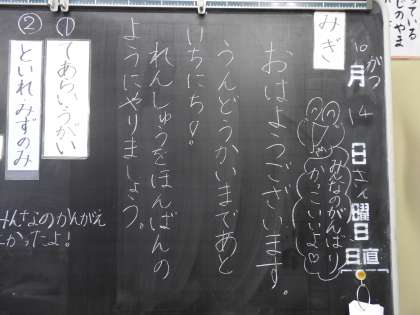 ている
じのやま
10がつ
月14日さん曜日
日直
みぎ
みんなのがんばり
かっこいいよ♡
おはようございます。
うんどうかいまであと
いちにち！
れんしゅうをほんばんの
ようにやりましょう。
①
てあらい、うがい
②
といれ、みずのみ
みんなのかんがえ
よかったよ！